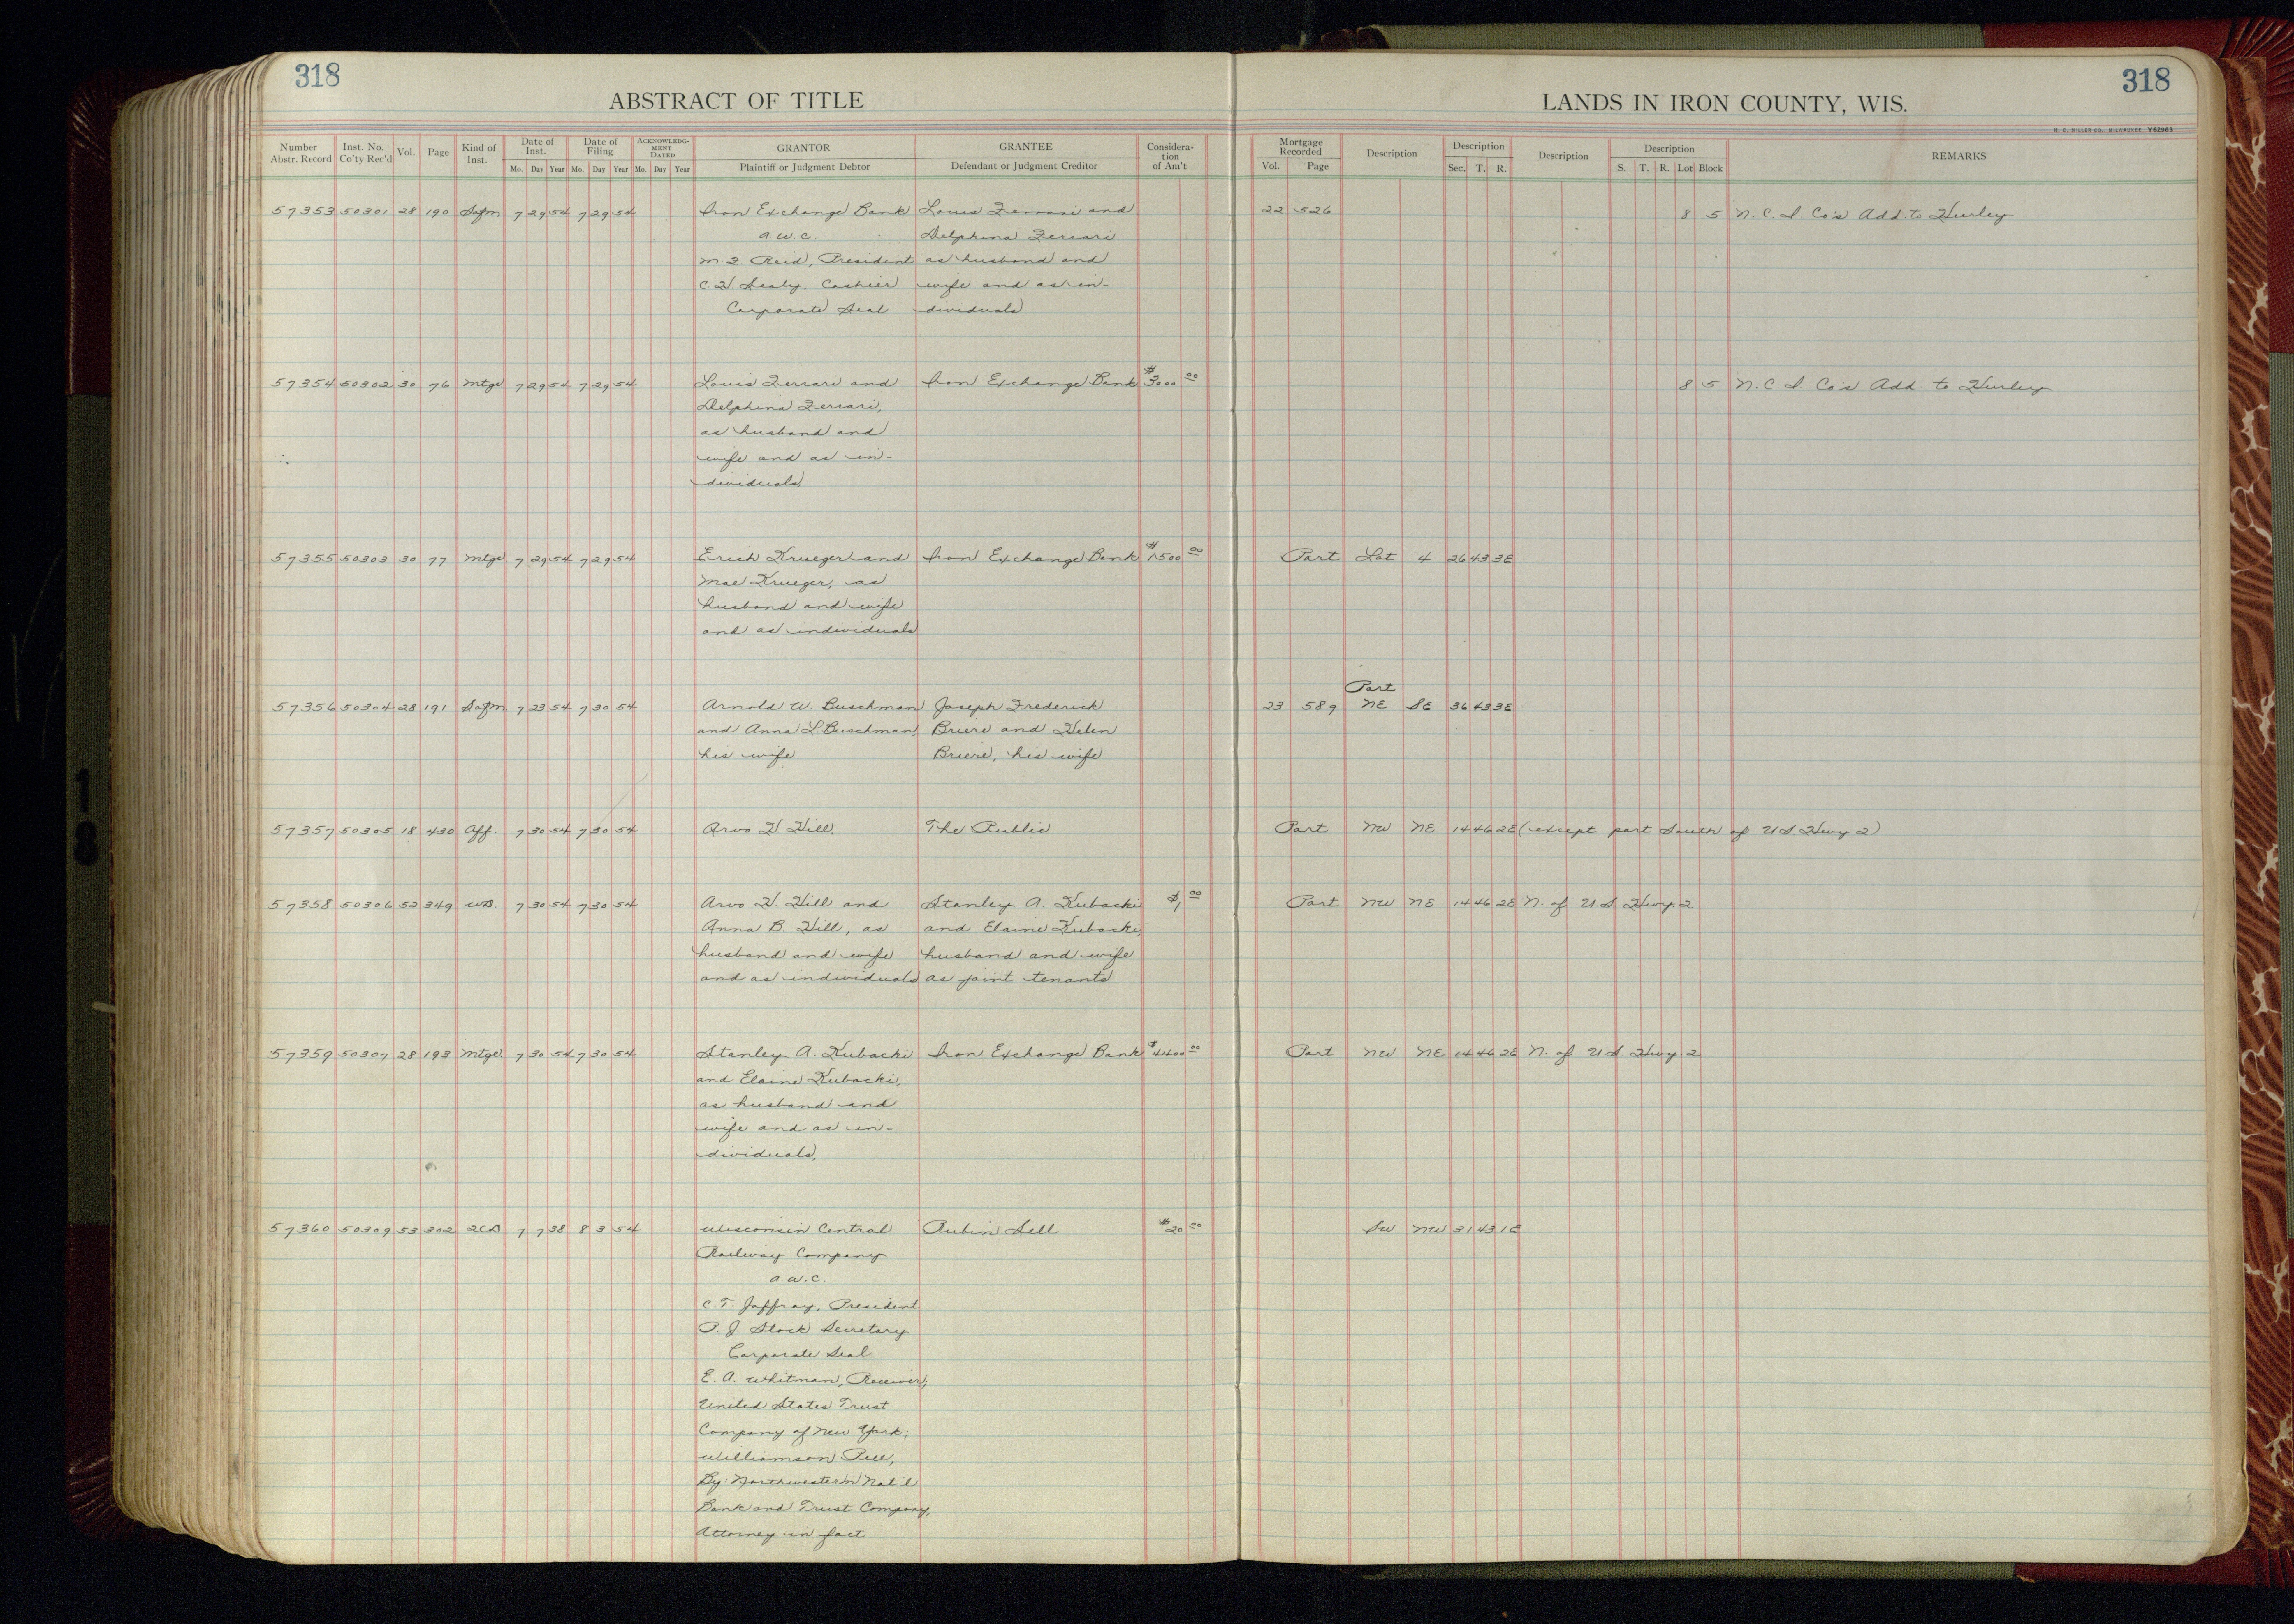 318
318
ABSTRACT OF TITLE
LANDS IN IRON COUNTY, WIS.
H. C. MILLER CO., MILWAUKEE Y62963
Number Abstr. Record Inst. No. Co'ty Rec'd Vol. Page Kind of Inst. Date of Inst. Date of Filing ACKNOWLEDGMENT DATED GRANTOR GRANTEE Consideration of Am't Mortgage Recorded Description Description Description Description REMARKS
Mo. Day Year Mo. Day Year Mo. Day Year Plaintiff or Judgment Debtor Defendant or Judgment Creditor Vol. Page Sec. T. R. S. T. R. Lot Block
57353 50301 28 190 Sofm 7 29 54 7 29 54 Iron Exchange Bank Louis Ferrari and 22 526 8 5 N. C. I. Co's Add. to Hurley
a. w. c. Delphina Ferrari
M. F. Reid, President as husband and
C. H. Sealy, Cashier wife and as in-
Corporate Seal dividuals
57354 50302 30 76 Mtge 7 29 54 7 29 54 Louis Ferrari and Iron Exchange Bank $3000 00 8 5 N. C. I. Co's Add. to Hurley
Delphina Ferrari,
as husband and
wife and as in-
dividuals
57355 50303 30 77 Mtge 7 29 54 7 29 54 Erich Krueger and Iron Exchange Bank $1500 00 Part Lot 4 26 43 3E
Mae Krueger, as
husband and wife
and as individuals
Part
57356 50304 28 191 Sofm 7 23 54 7 30 54 Arnold W. Buschman Joseph Frederick 23 589 NE SE 36 43 3E
and Anna L. Buschman, Briere and Helen
his wife Briere, his wife
57357 50305 18 430 Aff. 7 30 54 7 30 54 Arvo H. Hill. The Public Part NW NE 14 46 2E (except part South of U.S. Hwy 2)
57358 50306 52 349 W.D. 7 30 54 7 30 54 Arvo H. Hill and Stanley A. Kubacki $1 00 Part NW NE 14 46 2E N. of U.S. Hwy. 2
Anna B. Hill, as and Elaine Kubacki,
husband and wife husband and wife
and as individuals as joint tenants
57359 50307 28 193 Mtge 7 30 54 7 30 54 Stanley A. Kubacki Iron Exchange Bank $4400 00 Part NW NE 14 46 2E N. of U.S. Hwy 2
and Elaine Kubacki,
as husband and
wife and as in-
dividuals,
57360 50309 53 302 2CD 7 7 38 8 3 54 Wisconsin Central Rubin Sell $20 00 SW NW 31 43 1E
Railway Company
a. w. c.
C. T. Jaffray, President
P. J. Stock Secretary
Corporate Seal
E. A. Whitman, Receiver;
United States Trust
Company of New York;
Williamson Pell,
By: Northwestern Nat'l
Bank and Trust Company,
Attorney in fact